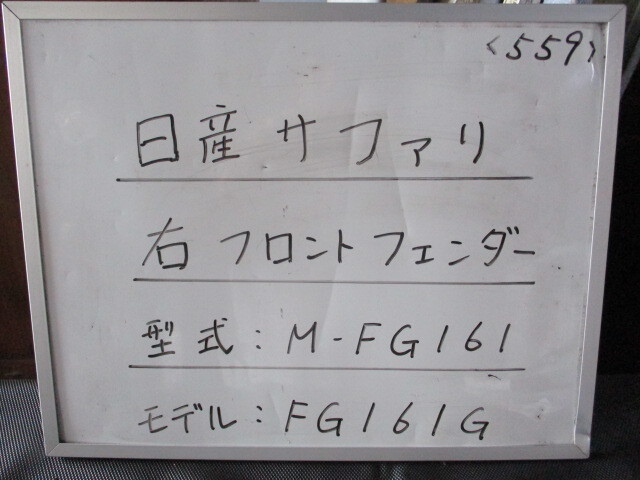 <559>
日産サファリ
右フロントフェンダー
型式:M-FG161
モデル:FG161G